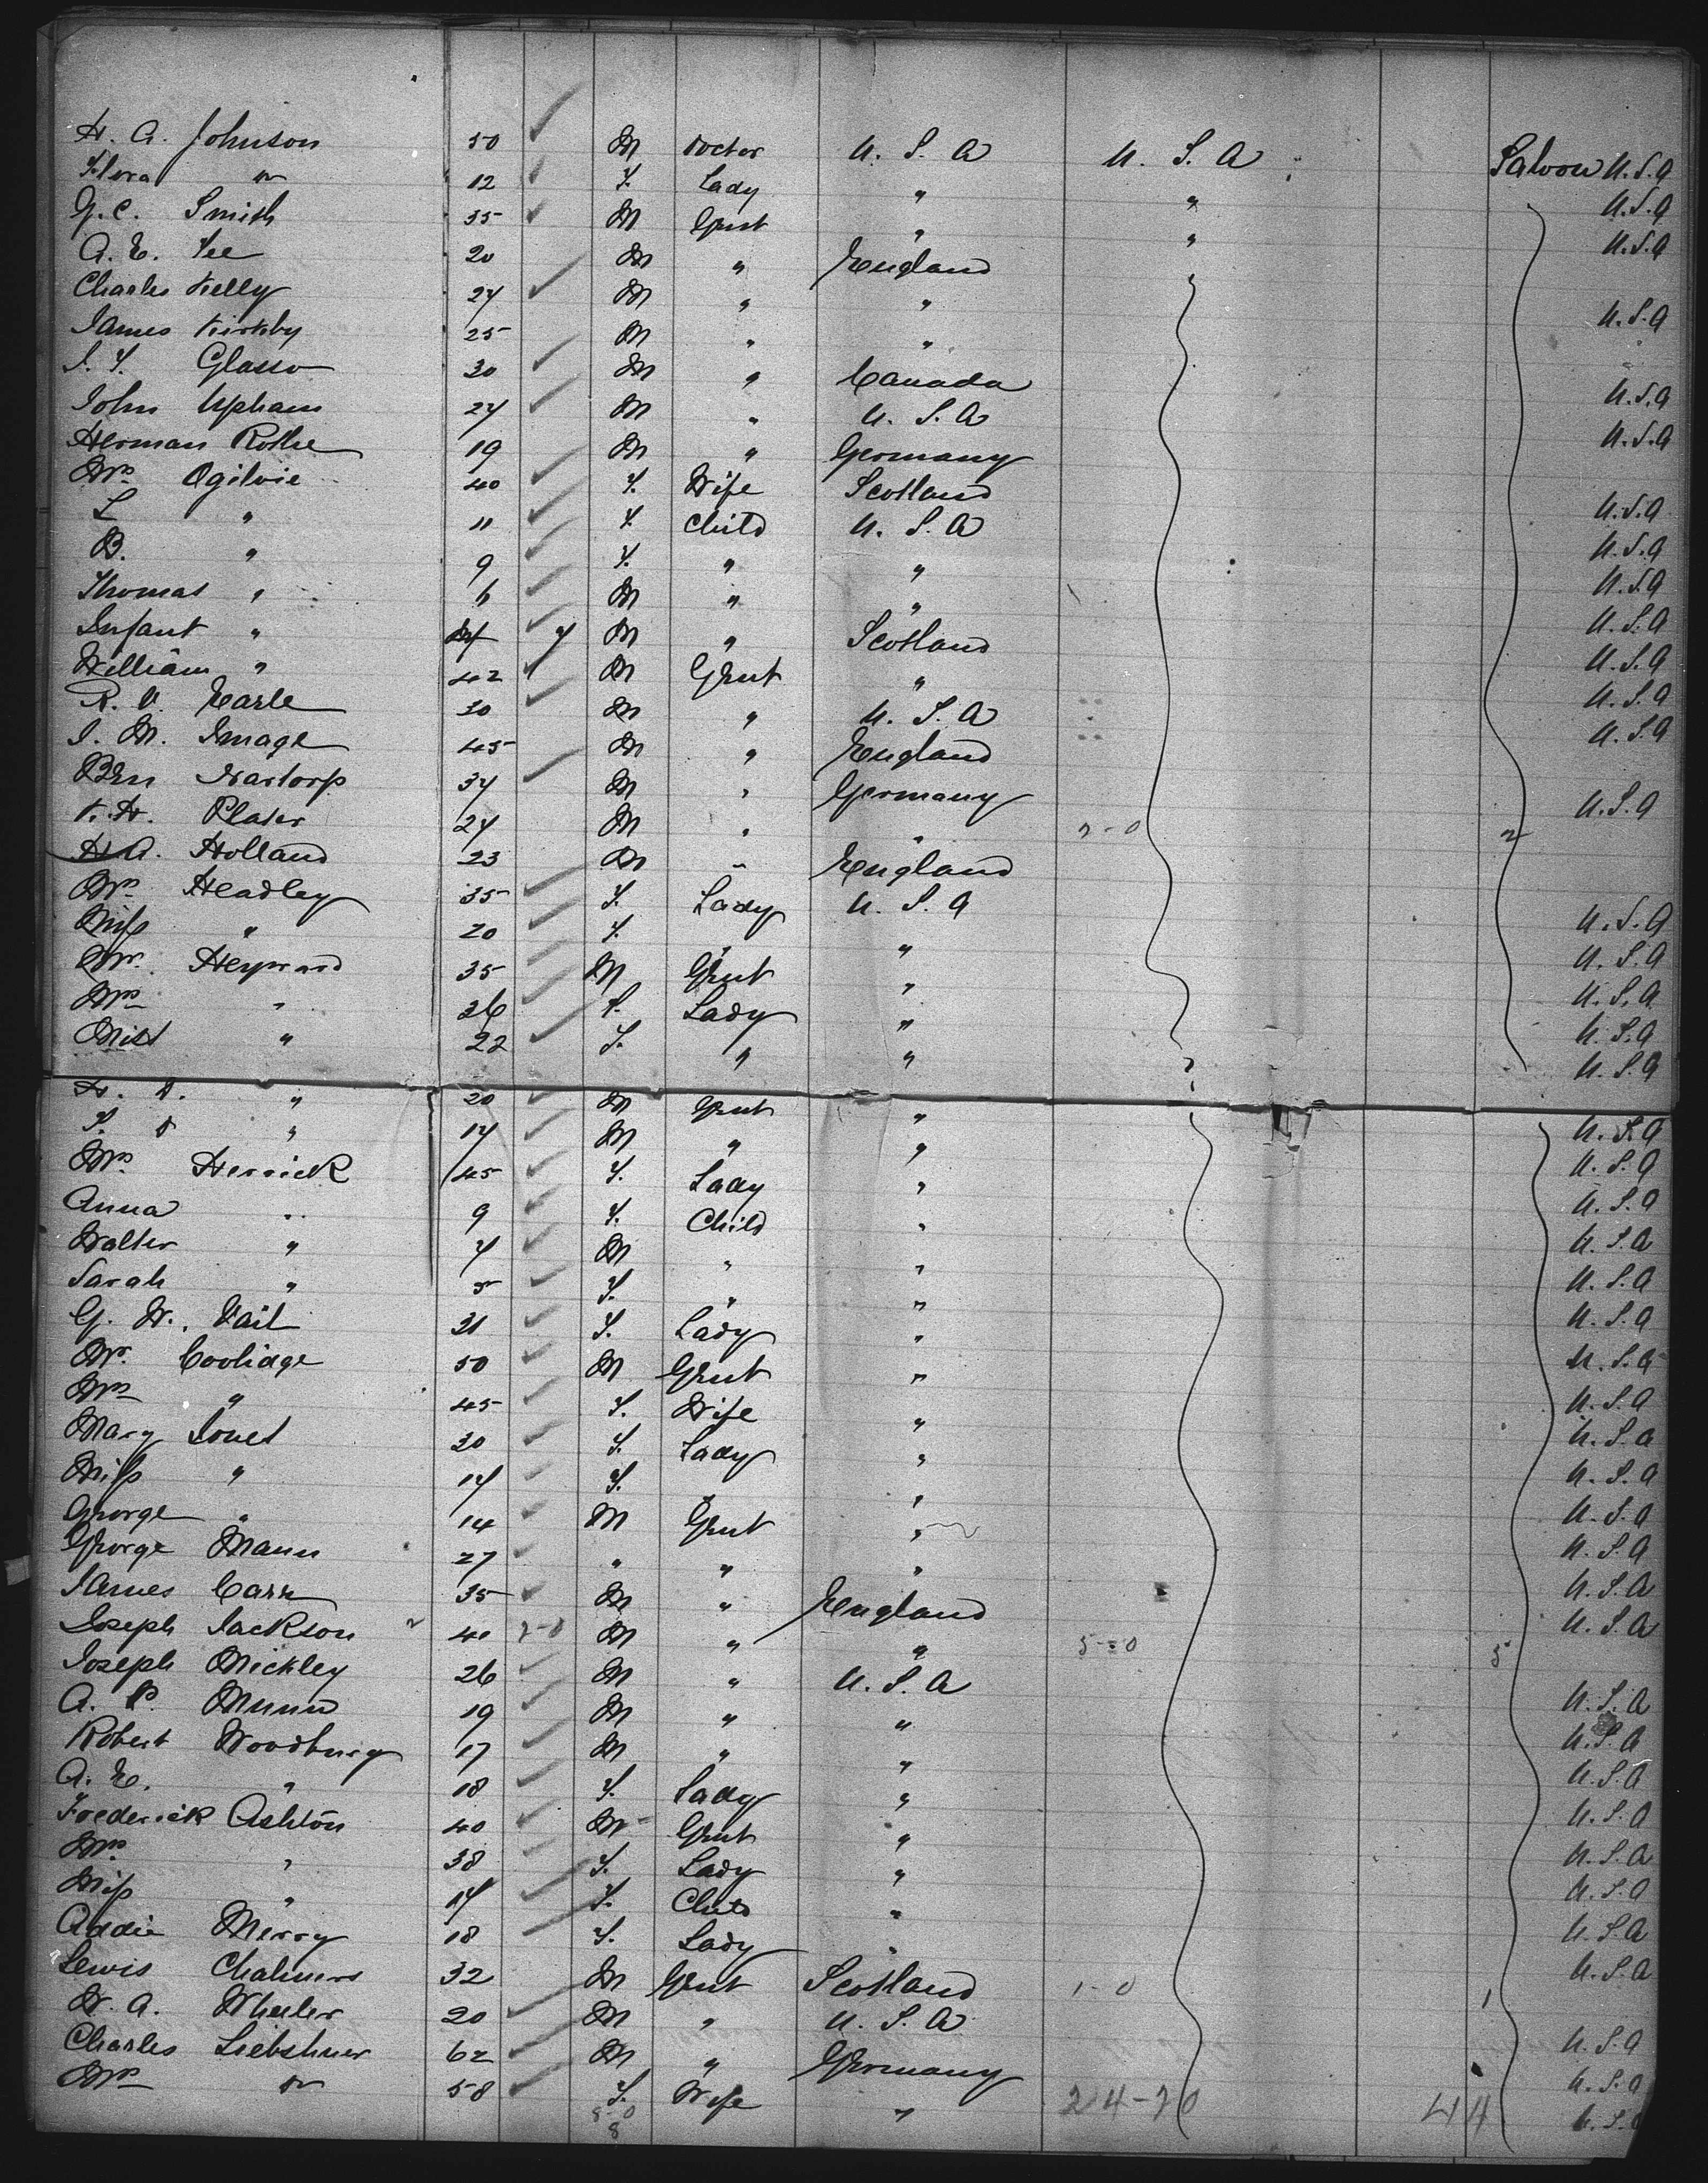 H. A. Johnson 50 M Doctor U. S. A U. S. A Saloon U.S.A
Flora " 12 F. Lady " " U.S.A
G. C. Smith 35 M Gent " " U.S.A
A. E. Lee 20 M " England
Charles Kelly 24 M " " U.S.A
James Kirkby 25 M " "
J. F. Glasso 30 M " Canada U.S.A
John Upham 24 M " U. S. A U.S.A
Herman Rothe 19 M " Germany
Mrs Ogilvie 40 F. Wife Scotland U.S.A
L " 11 F. Child U. S. A U.S.A
B. " 9 F. " " U.S.A
Thomas " 6 M " " U.S.A
Infant " M " Scotland U.S.A
William " 42 M Gent " U.S.A
R. V. Earle 30 M " U. S. A U.S.A
J. M. Image 45 M " England
Ben 34 M " Germany U.S.A
K. H. Plater 24 M " " 2-0 2
H. A. Holland 23 M " England
Mrs Headley 35 F. Lady U. S. A U.S.A
Miss " 20 F. " " U.S.A
Mr. Heyward 35 M Gent " U.S.A
Mrs " 26 F. Lady " U.S.A
Miss " 22 F. " " U.S.A
" 20 M Gent " U.S.A
" 17 M " " U.S.A
Mrs Herrick 45 F. Lady " U.S.A
Anna " 9 F. Child " U.S.A
Walter " 7 M " " U.S.A
Sarah " 5 F. " " U.S.A
G. W. Vail 31 F. Lady " U.S.A
Mr. Coolidge 50 M Gent " U.S.A
Mrs " 45 F. Wife " U.S.A
Mary Jones 30 F. Lady " U.S.A
Miss " 17 F. " " U.S.A
George " 14 M Gent " U.S.A
George Mann 27 " " " U.S.A
James Carr 35 M " England U.S.A
Joseph Jackson 40 M " " 5-0 5
Joseph Mickley 26 M " U. S. A U.S.A
A. P. Munn 19 M " " U.S.A
Robert Woodbury 17 M " " U.S.A
A. E. " 18 F. Lady " U.S.A
Frederick Ashton 40 M Gent " U.S.A
Mrs " 38 F. Lady " U.S.A
Miss " 14 F. Child " U.S.A
Addie Merry 18 F. Lady " U.S.A
Lewis Chalmers 32 M Gent Scotland 1-0 1
W. A. Wheeler 20 M " U. S. A U.S.A
Charles Liebshner 62 M " Germany U.S.A
Mrs " 58 F. Wife " 24-20 44 U.S.A
8-0
8